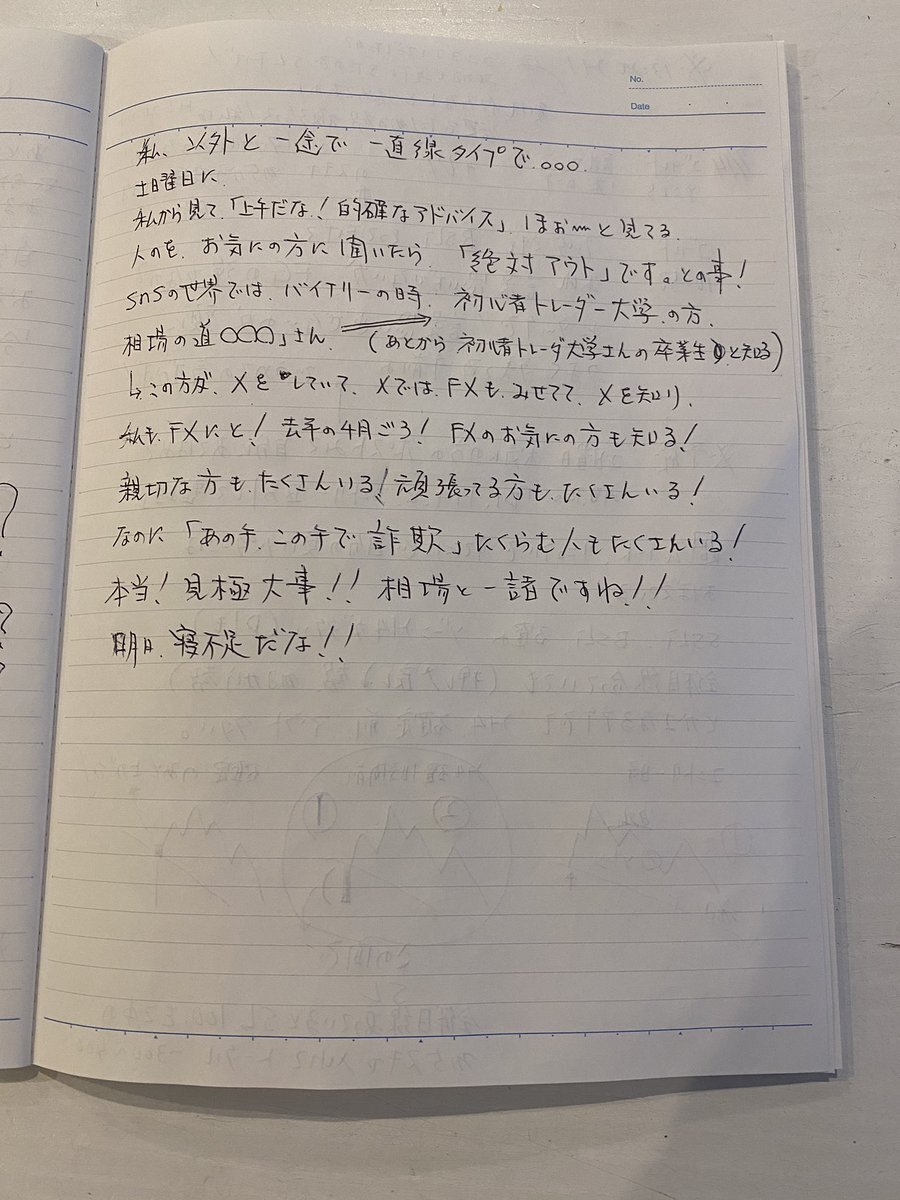 No.
Date
私、以外と一途で 一直線タイプで、○○○.
土曜日に、
私から見て、「上手だな!的確なアドバイス」、ほぉ〰と見てる、
人のを、お気にの方に聞いたら、「絶対アウト」です。との事!
SnSの世界では、バイナリーの時、初心者トレーダー大学、の方、
相場の道○○○」さん、 (あとから 初心者トレーダ大学さんの卒業生と知る)
↳この方が、Xをしていて、Xでは、FXも、みせてて、Xを知り、
私も、FXにと!去年の4月ごろ!FXのお気にの方も知る!
親切な方も、たくさんいる!頑張ってる方も、たくさんいる!
なのに「あの手、この手で詐欺」たくらむ人もたくさんいる!
本当!見極大事!!相場と一諸ですね!!
明日、寝不足だな!!